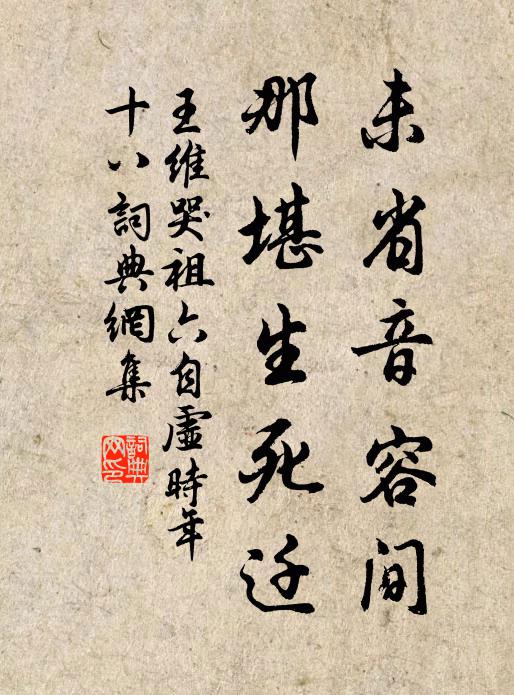 未省音容间
那堪生死迁
王维哭祖六自虚时年
十八詞典網集
詞典網印